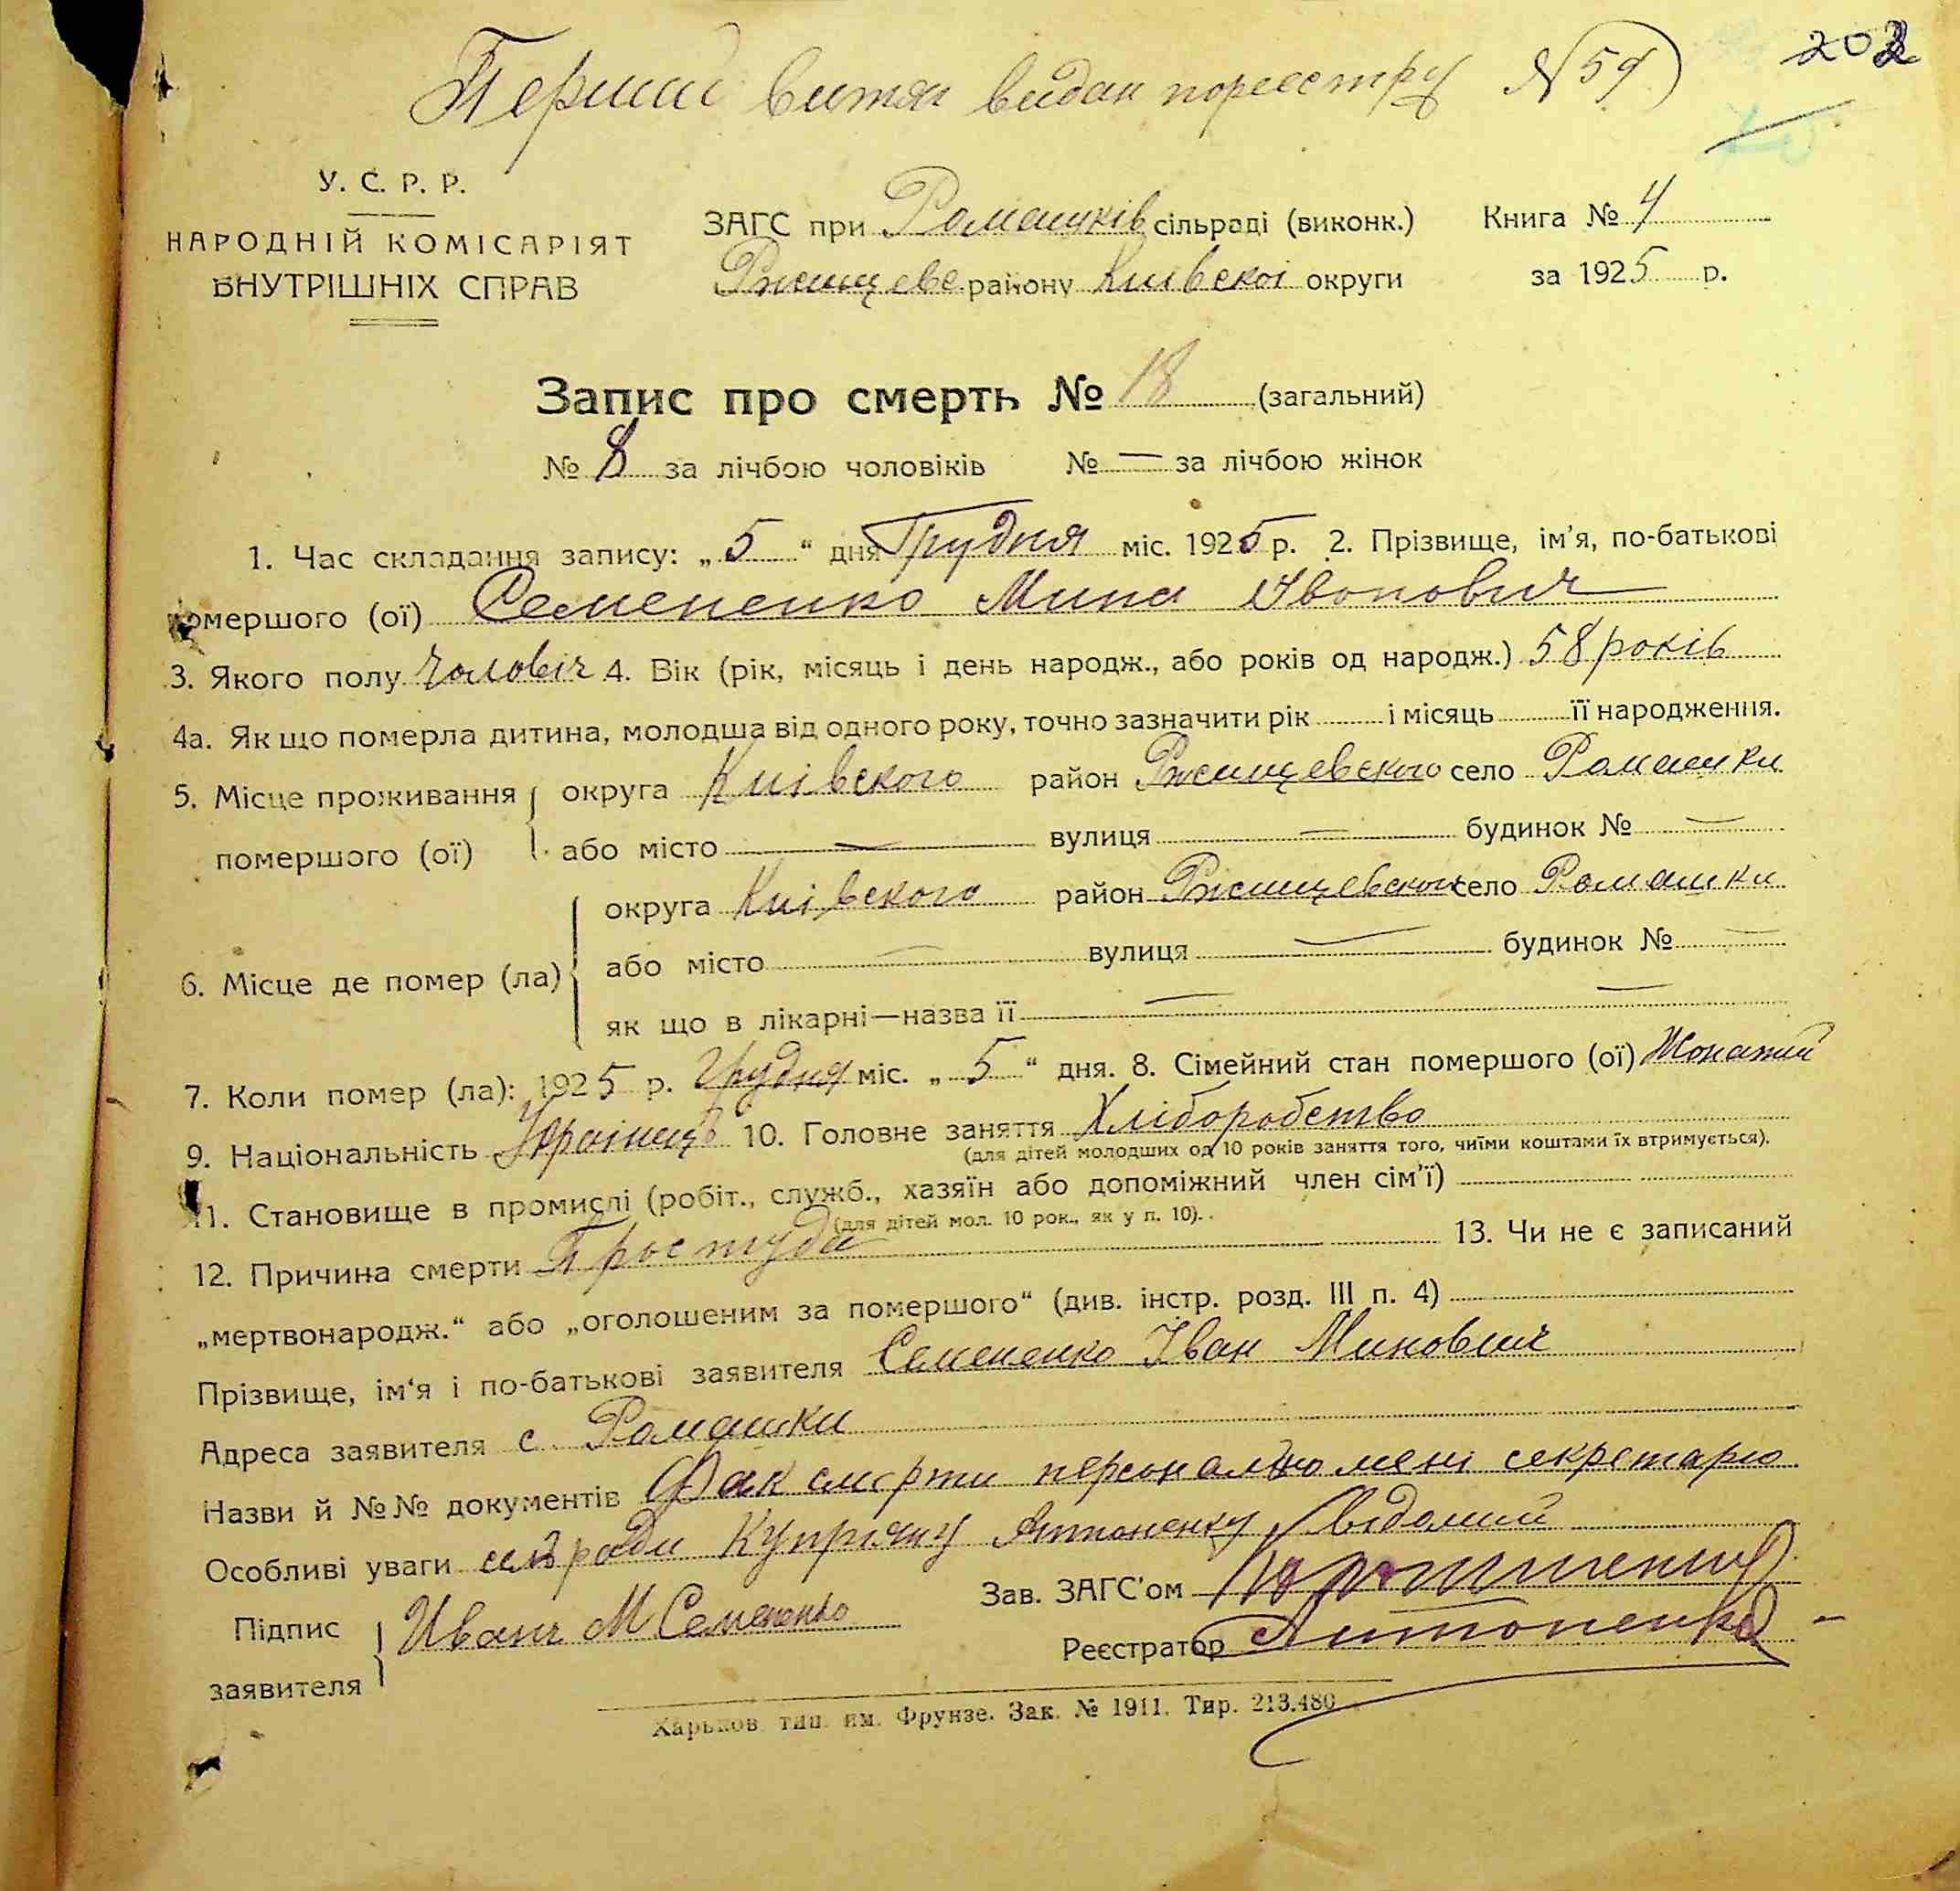 Перший витяг видан пореестру N 59
202
У. С. Р. Р.
НАРОДНІЙ КОМІСАРІЯТ
ВНУТРІШНІХ СПРАВ
ЗАГС при Ромашків сільраді (виконк.) Книга № 4
Ржищевс району Київскоі округи за 1925 р.
Запис про смерть № 18 (загальний)
№ 8 за лічбою чоловіків № — за лічбою жінок
1. Час складання запису: „ 5 “ дня Грудня міс. 1925 р. 2. Прізвище, ім’я, по-батькові
помершого (ої) Семененко Мина Івонович
3. Якого полу Чоловіч 4. Вік (рік, місяць і день народж., або років од народж.) 58 років
4а. Як що померла дитина, молодша від одного року, точно зазначити рік і місяць її народження.
5. Місце проживання помершого (ої) округа Київского район Ржищевского село Ромашки
або місто — вулиця — будинок № —
6. Місце де помер (ла) округа Київского район Ржищевского село Ромашки
або місто — вулиця — будинок № —
як що в лікарні—назва її — —
7. Коли помер (ла): 1925 р. Грудня міс. „ 5 “ дня. 8. Сімейний стан помершого (ої) Жонатий
9. Національність Україн 10. Головне заняття Хліборобство
(для дітей молодших од 10 років заняття того, чиїми коштами їх втримується).
11. Становище в промислі (робіт., служб., хазяїн або допоміжний член сім’ї)
(для дітей мол. 10 рок., як у п. 10).
12. Причина смерти Простуда 13. Чи не є записаний
„мертвонародж.“ або „оголошеним за помершого“ (див. інстр. розд. III п. 4)
Прізвище, ім‘я і по-батькові заявителя Семененко Іван Минович
Адреса заявителя с Ромашки
Назви й №№ документів Фак смерти персонально мені секретарю
Особливі уваги сілради Купріяну Антоненку відомий
Підпис заявителя Иванъ М Семененко
Зав. ЗАГС’ом
Реєстратор Антоненко
Харьков тип. им. Фрунзе. Зак. № 1911. Тир. 213.480